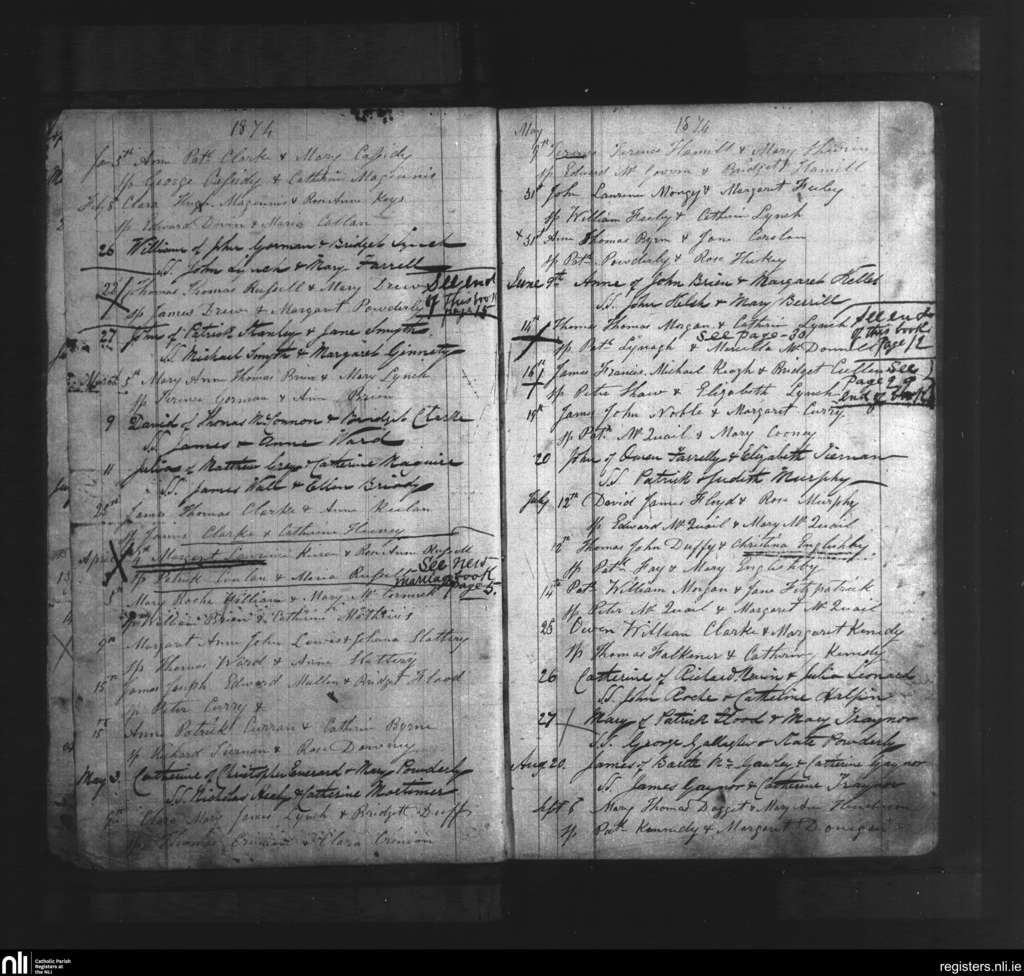 1874
Jan 5th Anne Patk Clarke & Mary Cassidy
Sp George Cassidy & Catherin Magennis
Feb 8 Clara Hugh Magennis & Rose Anne Keys
Sp Edward Down & Maria Catlan
26 William of John Gorman & Bridget Lynch
SS. John Lynch & Mary Farrell
22 Thomas Thomas Russell & Mary Drew See end
Sp James Drew & Margaret Powderly of this book
page 15
27 John of Patrick Stanley & Jane Smyth
SS Michael Smyth & Margaret Ginnety
March 5th Mary Anne Thomas Brien & Mary Lynch
Sp Terence Gorman & Anne Brien
9 David of Thomas McConnon & Bridget Clarke
SS. James & Anne Ward
11 Julia of Matthew & Catherine Maguire
SS. James Wall & Ellen Briody
25th James Thomas Clarke & Anne Keelan
Sp James Clarke & Catherine
April 5th Margaret Laurence & Rose Anne Russell
See new
Sp Patrick & Maria Russell marriage book
page 5.
5th Mary Roche William & Mary McCormick
Sp William Brien & Catherine Mathews
9th Margaret Anne John Lewis & Johana Slattery
Sp Thomas Ward & Anne Slattery
15th James Joseph Edward Mullen & Bridget Flood
Sp Peter Curry &
15 Anne Patrick Curran & Catherin Byrne
Sp Richard Tiernan & Rose Downey
May 3. Catherine of Christopher Everard & Mary Powderly
SS. Nicholas Healy & Catherine Mortimer
Clara Mary James Lynch & Bridgett Duff
Sp Thomas Crinion & Clara Crinion
May 1874
9th Terence Hamill & Mary
Sp Edward & Bridget Hamill
31st John Laurence Mongy & Margaret Feeley
Sp William Feely & Cathrin Lynch
x 31st Anne Thomas Byrn & Jane Carolan
Sp Patk Powderly & Rose Hickey
June 9th Anne of John Brien & Margaret
SS. John & Mary Berrill
14th Thomas Thomas Morgan & Cathrin Lynch See end
of this book
See page 30
Sp Patk Lynagh & McDonnell page 12
16th James Francis Michael Keogh & Bridget Cullen See
page 29
Sp Peter Shaw & Elizabeth Lynch end of book
19th James John Noble & Margaret Curry
Sp Patk McQuail & Mary Cooney
20 John of Owen Farrelly & Elizabeth Tiernan
SS. Patrick & Judith Murphy
July 12th David James Floyd & Rose Murphy
Sp Edward McQuail & Mary McQuail
12th Thomas John Duffy & Christina Englishby
Sp Patk Fay & Mary Englishby
14th Patk William Morgan & Jane Fitzpatrick
Sp Peter McQuail & Margaret McQuail
25 Owen William Clarke & Margaret Kenedy
Sp Thomas Falkener & Cathrin Kennedy
26 Catherine of Richard & Julia Leonard
SS. John Roche & Catherine Halpin
27 Mary of Patrick Flood & Mary Traynor
SS. George Gallagher & Kate Powderly
Aug 20. James of Bartle McGawley & Catherine Gaynor
SS. James Gaynor & Catherine Traynor
Sept 8 Mary Thomas Dagget & Mary Ann
Sp Patk Kennedy & Margaret Donegan
nli Catholic Parish
Registers at
the NLI
registers.nli.ie